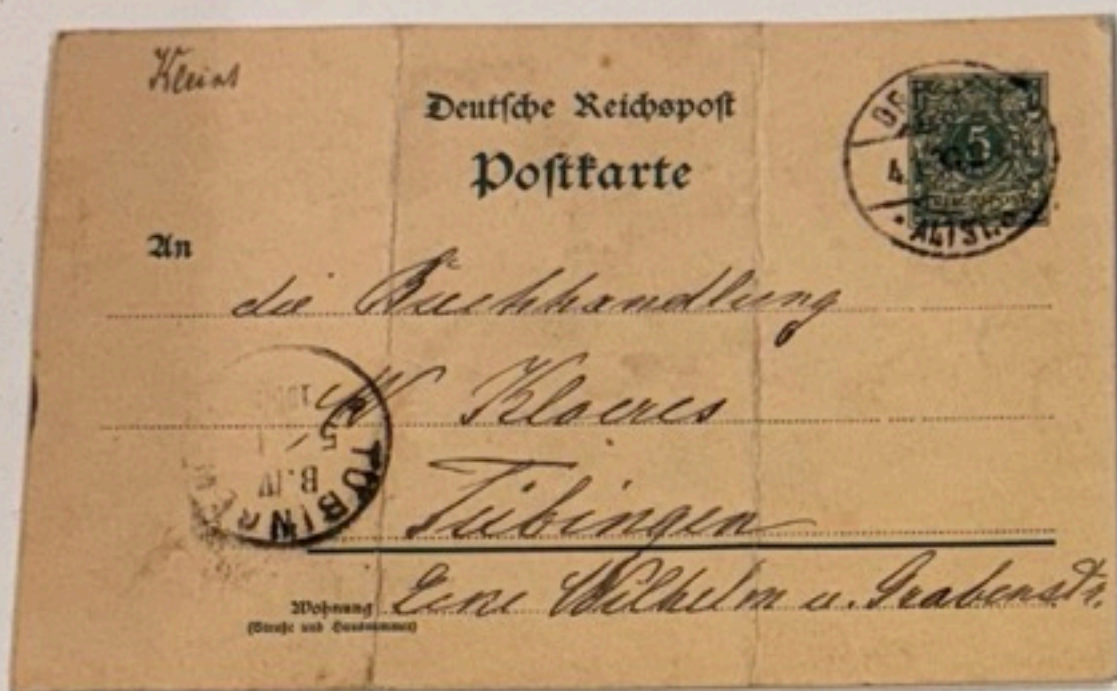 Deutsche Reichspost
Postkarte
5
ALTST.
An
die Buchhandlung
W Kloeres
Tübingen
TÜBINGEN
5
B.IV
Wohnung
(Straße und Hausnummer)
Ecke Wilhelm u. Grabenstr.